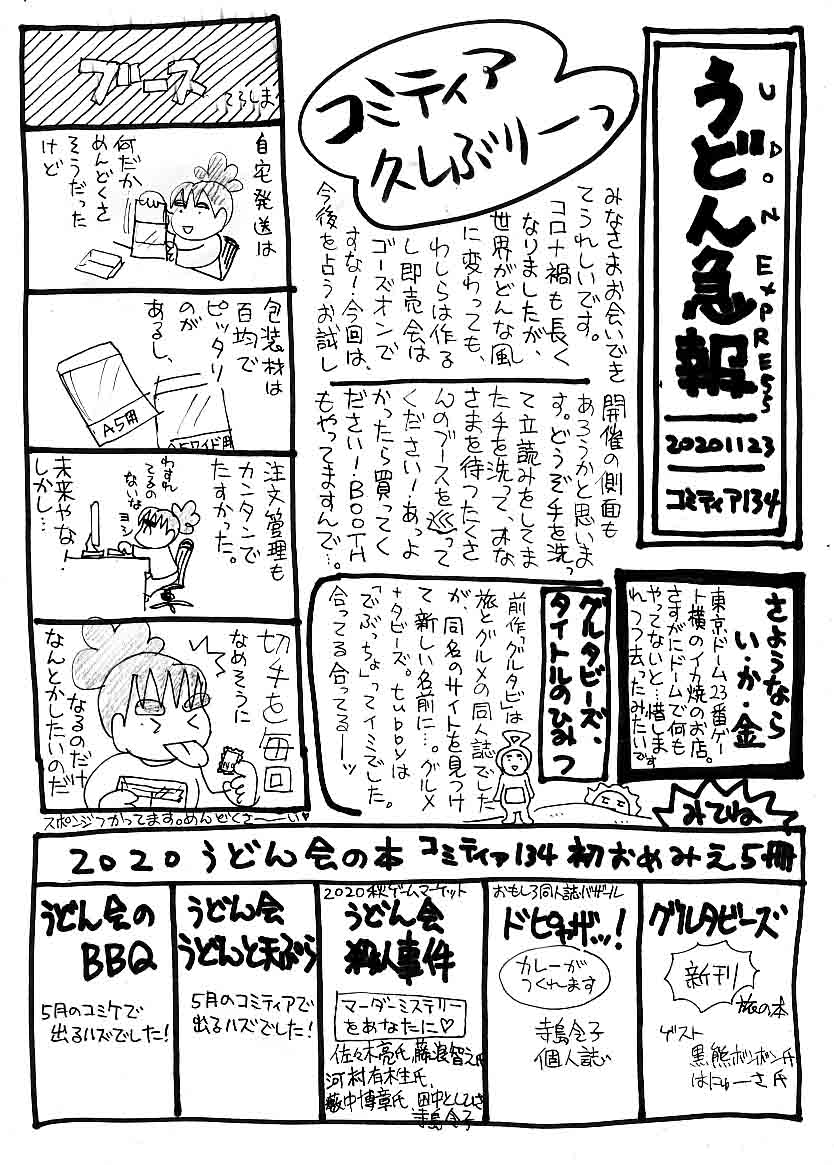 うどん急報
UDON EXPRESS
20201123
コミティア134
コミティア
久しぶりーっ
みなさまお会いでき
てうれしいです。
コロナ禍も長く
なりましたが、
世界がどんな風
に変わっても、
わしらは作る
し即売会は
ゴーズオンで
すな!今回は、
今後を占うお試し
開催の側面も
あろうかと思いま
す。どうぞ手を洗っ
て立読みをしてま
た手を洗って、オな
さまを待つたくさ
んのブースを巡って
ください!あっよ
かったら買ってく
ださい!BOOTH
もやってますんで…。
ブース
てらしま
自宅発送は
何だか
めんどくさ
そうだった
けど
包装材は
百均で
ピッタリ
のが
あるし、
A5用
A5ワイド用
注文管理も
カンタンで
たすかった。
わすれ
てるの
ないな
ヨシ
未来やな!
しかし…
切手を毎回
なめそうに
なるのだけ
なんとかしたいのだ
スポンジつかってます。めんどくさ〜〜い♡
さようなら
い・か・金
東京ドーム23番ゲー
ト横のイカ焼のお店。
さすがにドームで何も
やってないと…惜しま
れつつ去ったみたいです
グルタビーズ、
タイトルのひみつ
前作「グルタビ」は
旅とグルメの同人誌でした
が、同名のサイトを見つけ
て新しい名前に…。グルメ
+タビーズ。tubbyは
「でぶっちょ」ってイミでした。
合ってる合ってるーッ
みてね
2020うどん会の本 コミティア134初おめみえ5冊
グルタビーズ
新刊
旅の本
ゲスト
黒熊ボンボン氏
はにゅーさ氏
おもしろ同人誌バザール
ドピナザッ!
カレーが
つくれます
寺島令子
個人誌
2020秋ゲームマーケット
うどん会
殺人事件
マーダーミステリー
をあなたに♡
佐々木亮氏、藤浪智之氏
河村有木生氏、
藪中博章氏、田中としひさ
寺島令子
うどん会
うどんと天ぷら
5月のコミティアで
出るハズでした!
うどん会の
BBQ
5月のコミケで
出るハズでした!